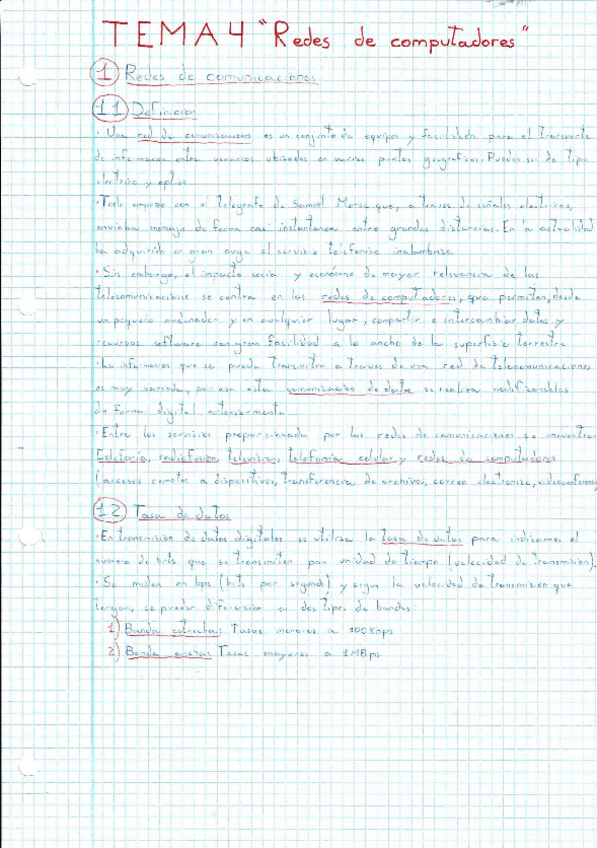 TEMA 4 "Redes de computadores"
1 Redes de comunicaciones
1.1 Definición
· Una red de comunicaciones es un conjunto de equipos y facilidades para el transporte
de información entre usuarios ubicados en varios puntos geográficos. Pueden ser de tipo
eléctrico y óptico
· Todo empezó con el telégrafo de Samuel Morse que, a través de señales eléctricas,
enviaba mensajes de forma casi instantanea entre grandes distancias. En la actualidad
ha adquirido un gran auge el servicio telefónico inalámbrico.
· Sin embargo, el impacto social y económico de mayor relevancia de las
telecomunicaciones se centra en las redes de computadores, que permiten, desde
un pequeño ordenador y en cualquier lugar, compartir e intercambiar datos y
recursos software con gran facilidad a lo ancho de la superficie terrestre
· La información que se puede transmitir a traves de una red de telecomunicaciones
es muy variada, por eso esta comunicación de datos se realiza
de forma digital
· Entre los servicios proporcionados por las redes de comunicaciones se encuentran
telefonía, radiofusion, television, telefonía celular y redes de computadores
(accesos remoto a dispositivos, transferencia de archivos, correo electronico, videoconferencia
1.2 Tasa de datos
· En transmisión de datos digitales se utiliza la tasa de datos para indicarnos el
número de bits que se transmiten por unidad de tiempo (velocidad de transmision).
· Se miden en bps (bits por segundo) y segun la velocidad de transmision que
tengan, se pueden diferenciar dos tipos de bandas:
1) Banda estrecha: Tasas menores a 100Kbps
2) Banda ancha: Tasas mayores a 1MBps